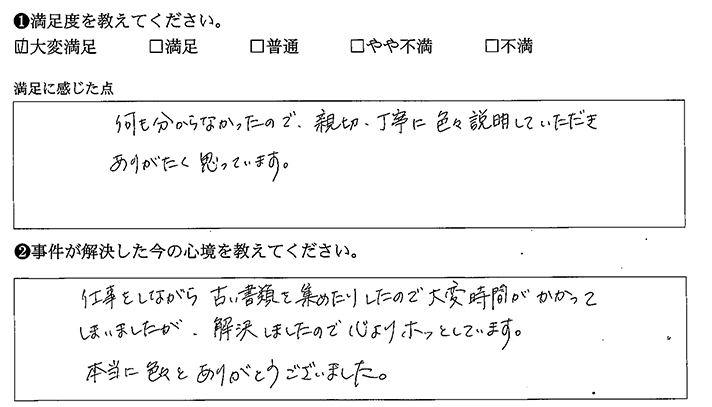 ❶満足度を教えてください。
☑大変満足 □満足 □普通 □やや不満 □不満
満足に感じた点
何も分からなかったので、親切、丁寧に色々説明していただき
ありがたく思っています。
❷事件が解決した今の心境を教えてください。
仕事をしながら古い書類を集めたりしたので大変時間がかかって
しまいましたが、解決しましたので心よりホッとしています。
本当に色々とありがとうございました。